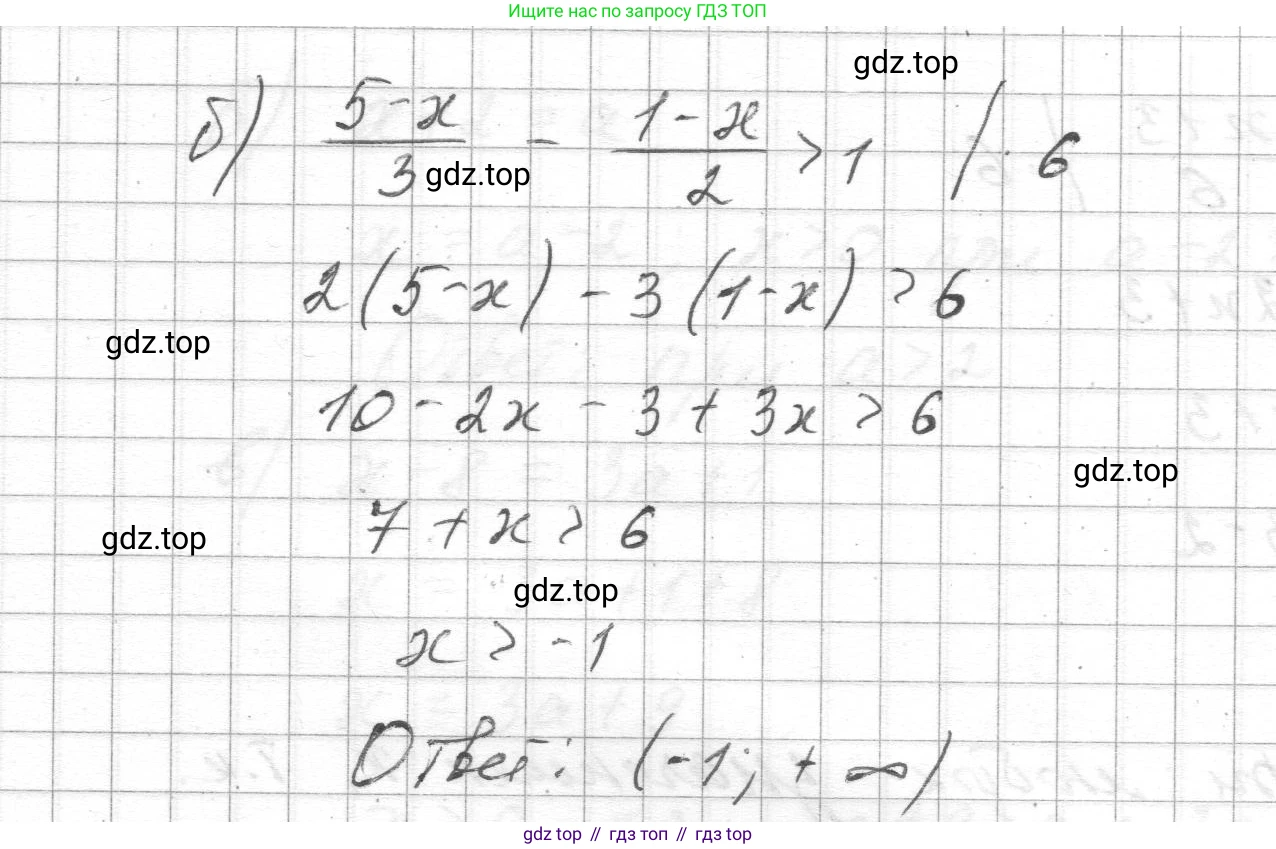 Ищите нас по запросу ГДЗ ТОП
gdz.top
б) (5-x)/3 - (1-x)/2 > 1 | · 6
gdz.top
2(5-x) - 3(1-x) > 6
gdz.top
10 - 2x - 3 + 3x > 6
gdz.top
7 + x > 6
gdz.top
gdz.top
x > -1
Ответ: (-1; + ∞)
gdz top // гдз топ // гдз top